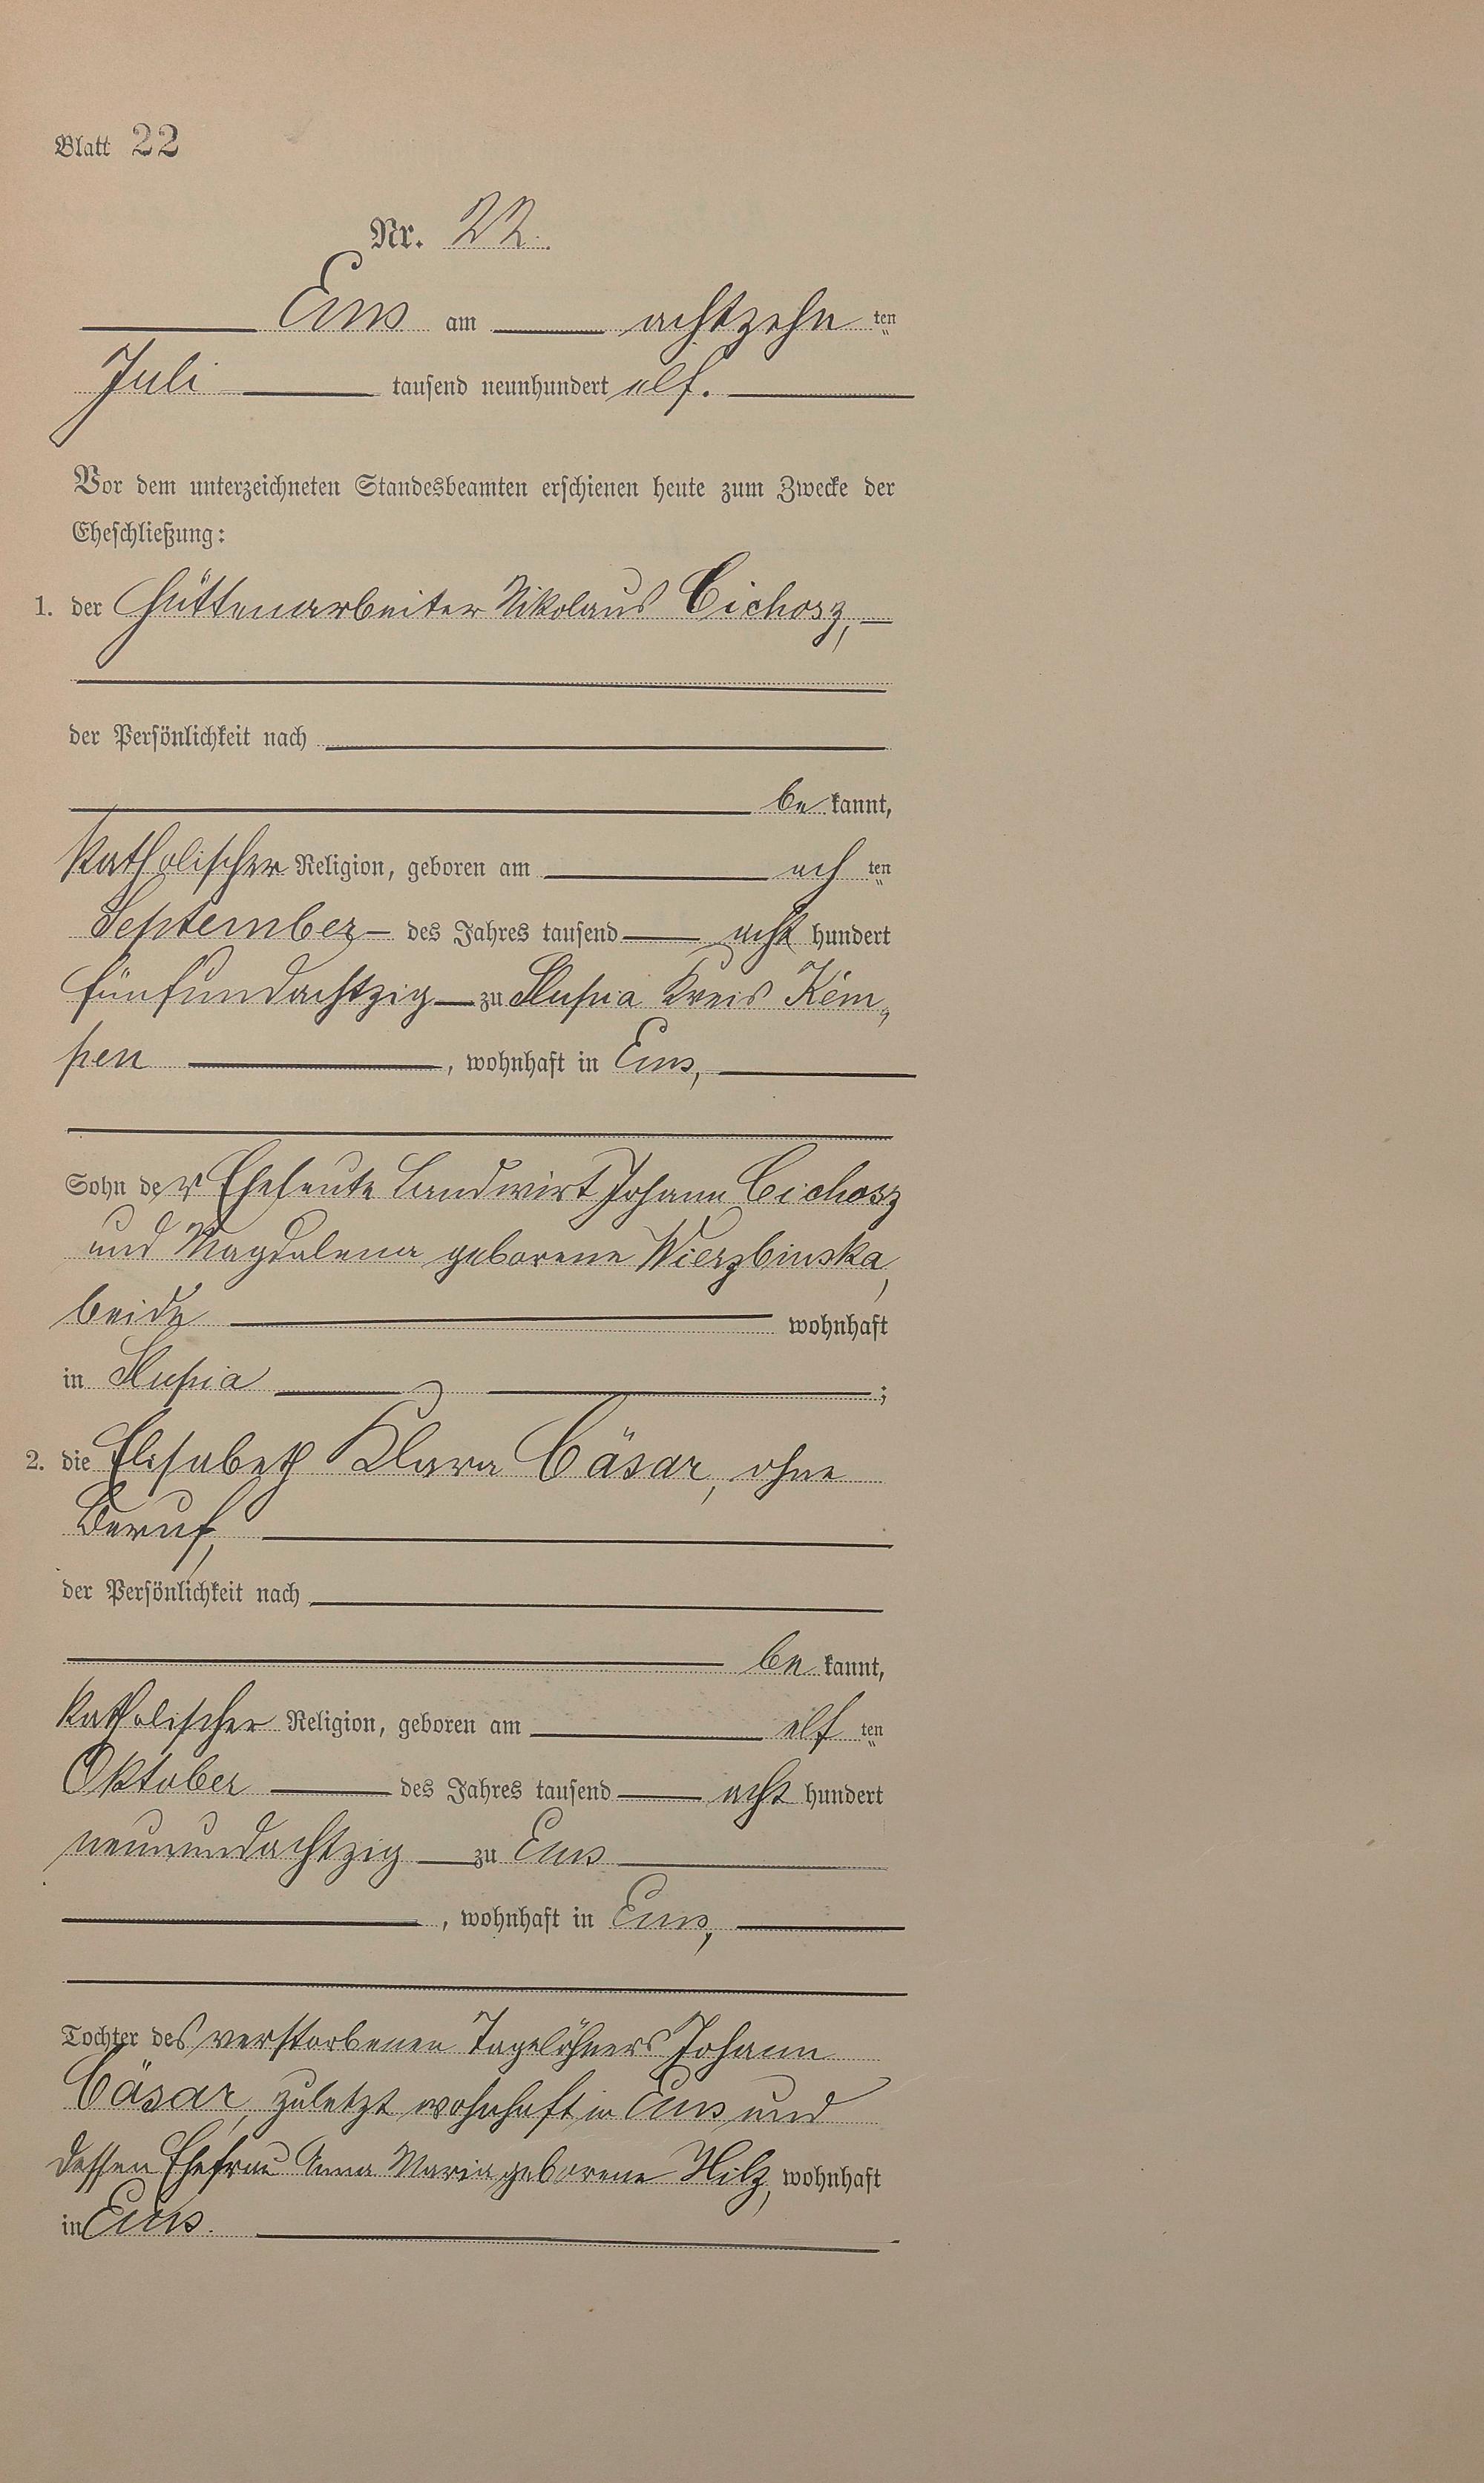 Blatt 22
Nr. 22.
Ems am achtzehn ten
Juli tausend neunhundert elf.
Vor dem unterzeichneten Standesbeamten erschienen heute zum Zwecke der
Eheschließung:
1. der Hüttenarbeiter Nikolaus Cichosz,
der Persönlichkeit nach
be kannt,
katholischer Religion, geboren am ach ten
September des Jahres tausend acht hundert
fünfundachtzig zu Slupia Kreis Kem„
pen , wohnhaft in Ems,
Sohn der Eheleute Landwirt Johann Cichosz
und Magdalena geborene Wierzbinska,
beide wohnhaft
in Slupia ;
2. die Elisabeth Klara Cäsar, ohne
Beruf,
der Persönlichkeit nach
be kannt,
katholischer Religion, geboren am elf ten
Oktober des Jahres tausend acht hundert
neunundachtzig zu Ems
, wohnhaft in Ems,
Tochter des verstorbenen Tagelöhners Johann
Cäsar, zuletzt wohnhaft in Ems und
dessen Ehefrau Anna Maria geborene Hilz, wohnhaft
in Ems.